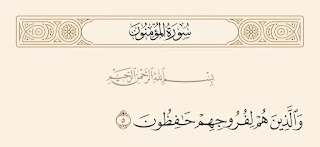 سُورَةُ الْمُؤْمِنُونَ
بِسْمِ اللَّهِ الرَّحْمَٰنِ الرَّحِيمِ
وَٱلَّذِينَ هُمْ لِفُرُوجِهِمْ حَٰفِظُونَ ٥